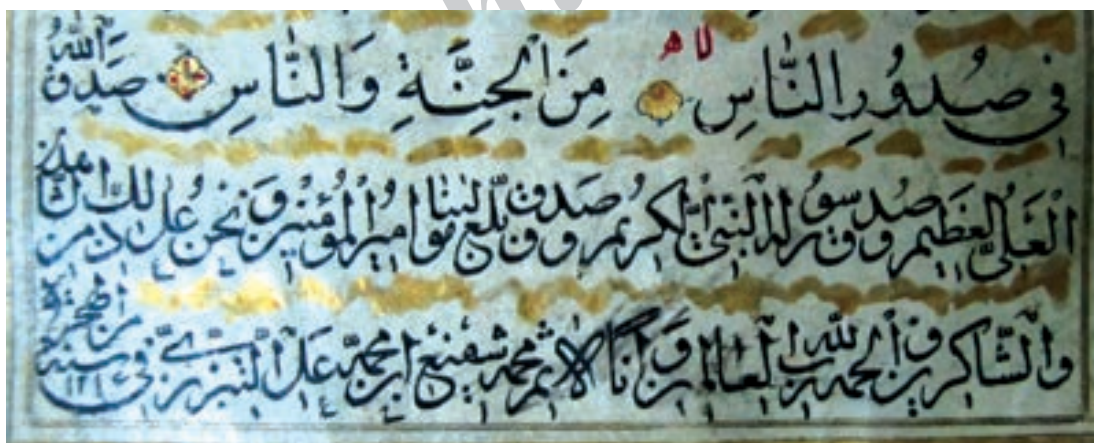 فِي صُدُورِ النَّاسِ لا مِنَ الْجِنَّةِ وَالنَّاسِ صَدَقَ اللهُ
العَلِيُّ العَظِيم وصدق رسوله النبي الكريم وصدق وبلّغ مولينا امير المؤمنين ونحن على ذلك من
والشاكرين والحمد لله رب العالمين وانا الاثم محمد شفيع ابن محمد علي التبريزي في سنة من الهجرة